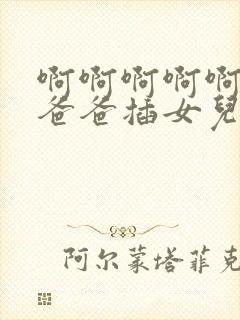 啊啊啊啊啊
爸爸插女兒
阿尔蒙塔菲克